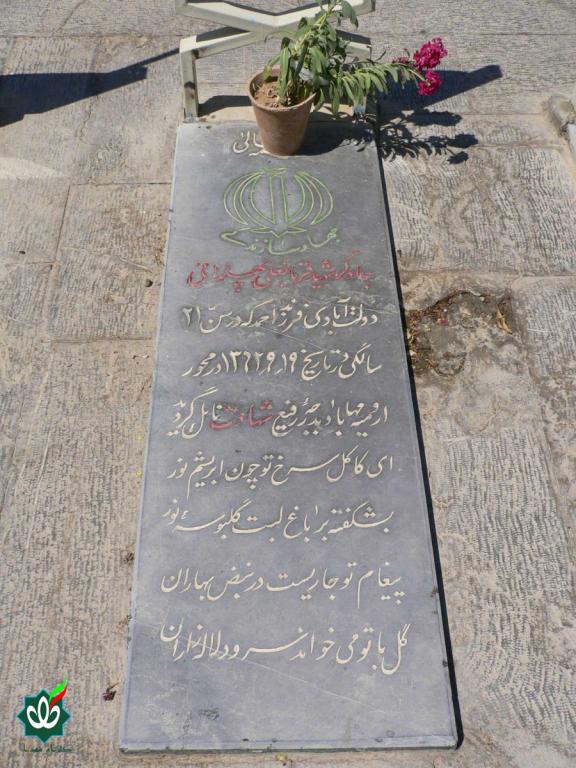 تعالی
جهاد سازندگی
جهادگر شهید قربانعلی بهرامی
دولت آبادی فرزند احمد که در سن ۲۱
سالگی در تاریخ ۱۳۶۲٫۹٫۱۹ در محور
ارومیه مهاباد بدرجه رفیع شهادت نایل گردید
ای کاکل سرخ تو چون ابریشم نور
بشکفته بر باغ لبت گلبوسه نور
پیغام تو جاریست در نبض بهاران
گل با تو می خواند سرود لاله زاران